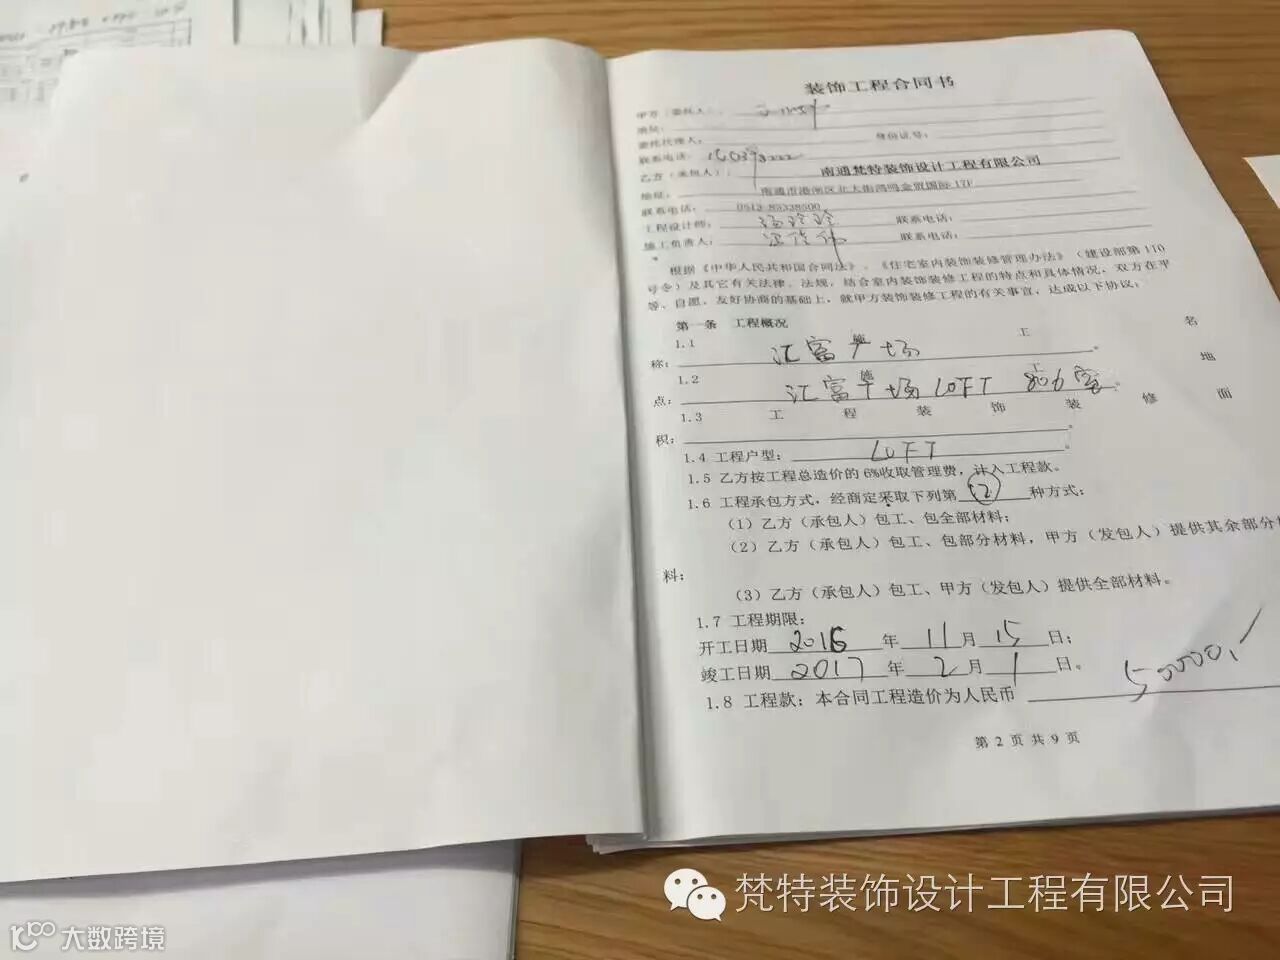 装饰工程合同书
甲方（委托人）：
地址：
委托代理人： 身份证号：
联系电话：
乙方（承包人）： 南通梵特装饰设计工程有限公司
地址： 南通市港闸区北大街鸿鸣金贸国际17F
联系电话： 0513-85338500
工程设计师： 联系电话：
施工负责人： 联系电话：
根据《中华人民共和国合同法》、《住宅室内装饰装修管理办法》（建设部第110
号令）及其它有关法律、法规，结合室内装饰装修工程的特点和具体情况，双方在平
等、自愿，友好协商的基础上，就甲方装饰装修工程的有关事宜，达成以下协议：
第一条 工程概况
1.1 施 工 名
称： 汇富广场 。
1.2 施 工 地
点： 汇富广场 LOFT 806室 。
1.3 工 程 装 饰 装 修 面
积： 。
1.4 工程户型： LOFT 。
1.5 乙方按工程总造价的6%收取管理费，计入工程款。
1.6 工程承包方式，经商定采取下列第 (2) 种方式：
（1）乙方（承包人）包工、包全部材料；
（2）乙方（承包人）包工、包部分材料，甲方（发包人）提供其余部分材
料；
（3）乙方（承包人）包工、甲方（发包人）提供全部材料。
1.7 工程期限：
开工日期 2016 年 11 月 15 日；
竣工日期 2017 年 2 月 1 日。
1.8 工程款：本合同工程造价为人民币 50000.
第 2 页 共 9 页
梵特装饰设计工程有限公司
大数跨境